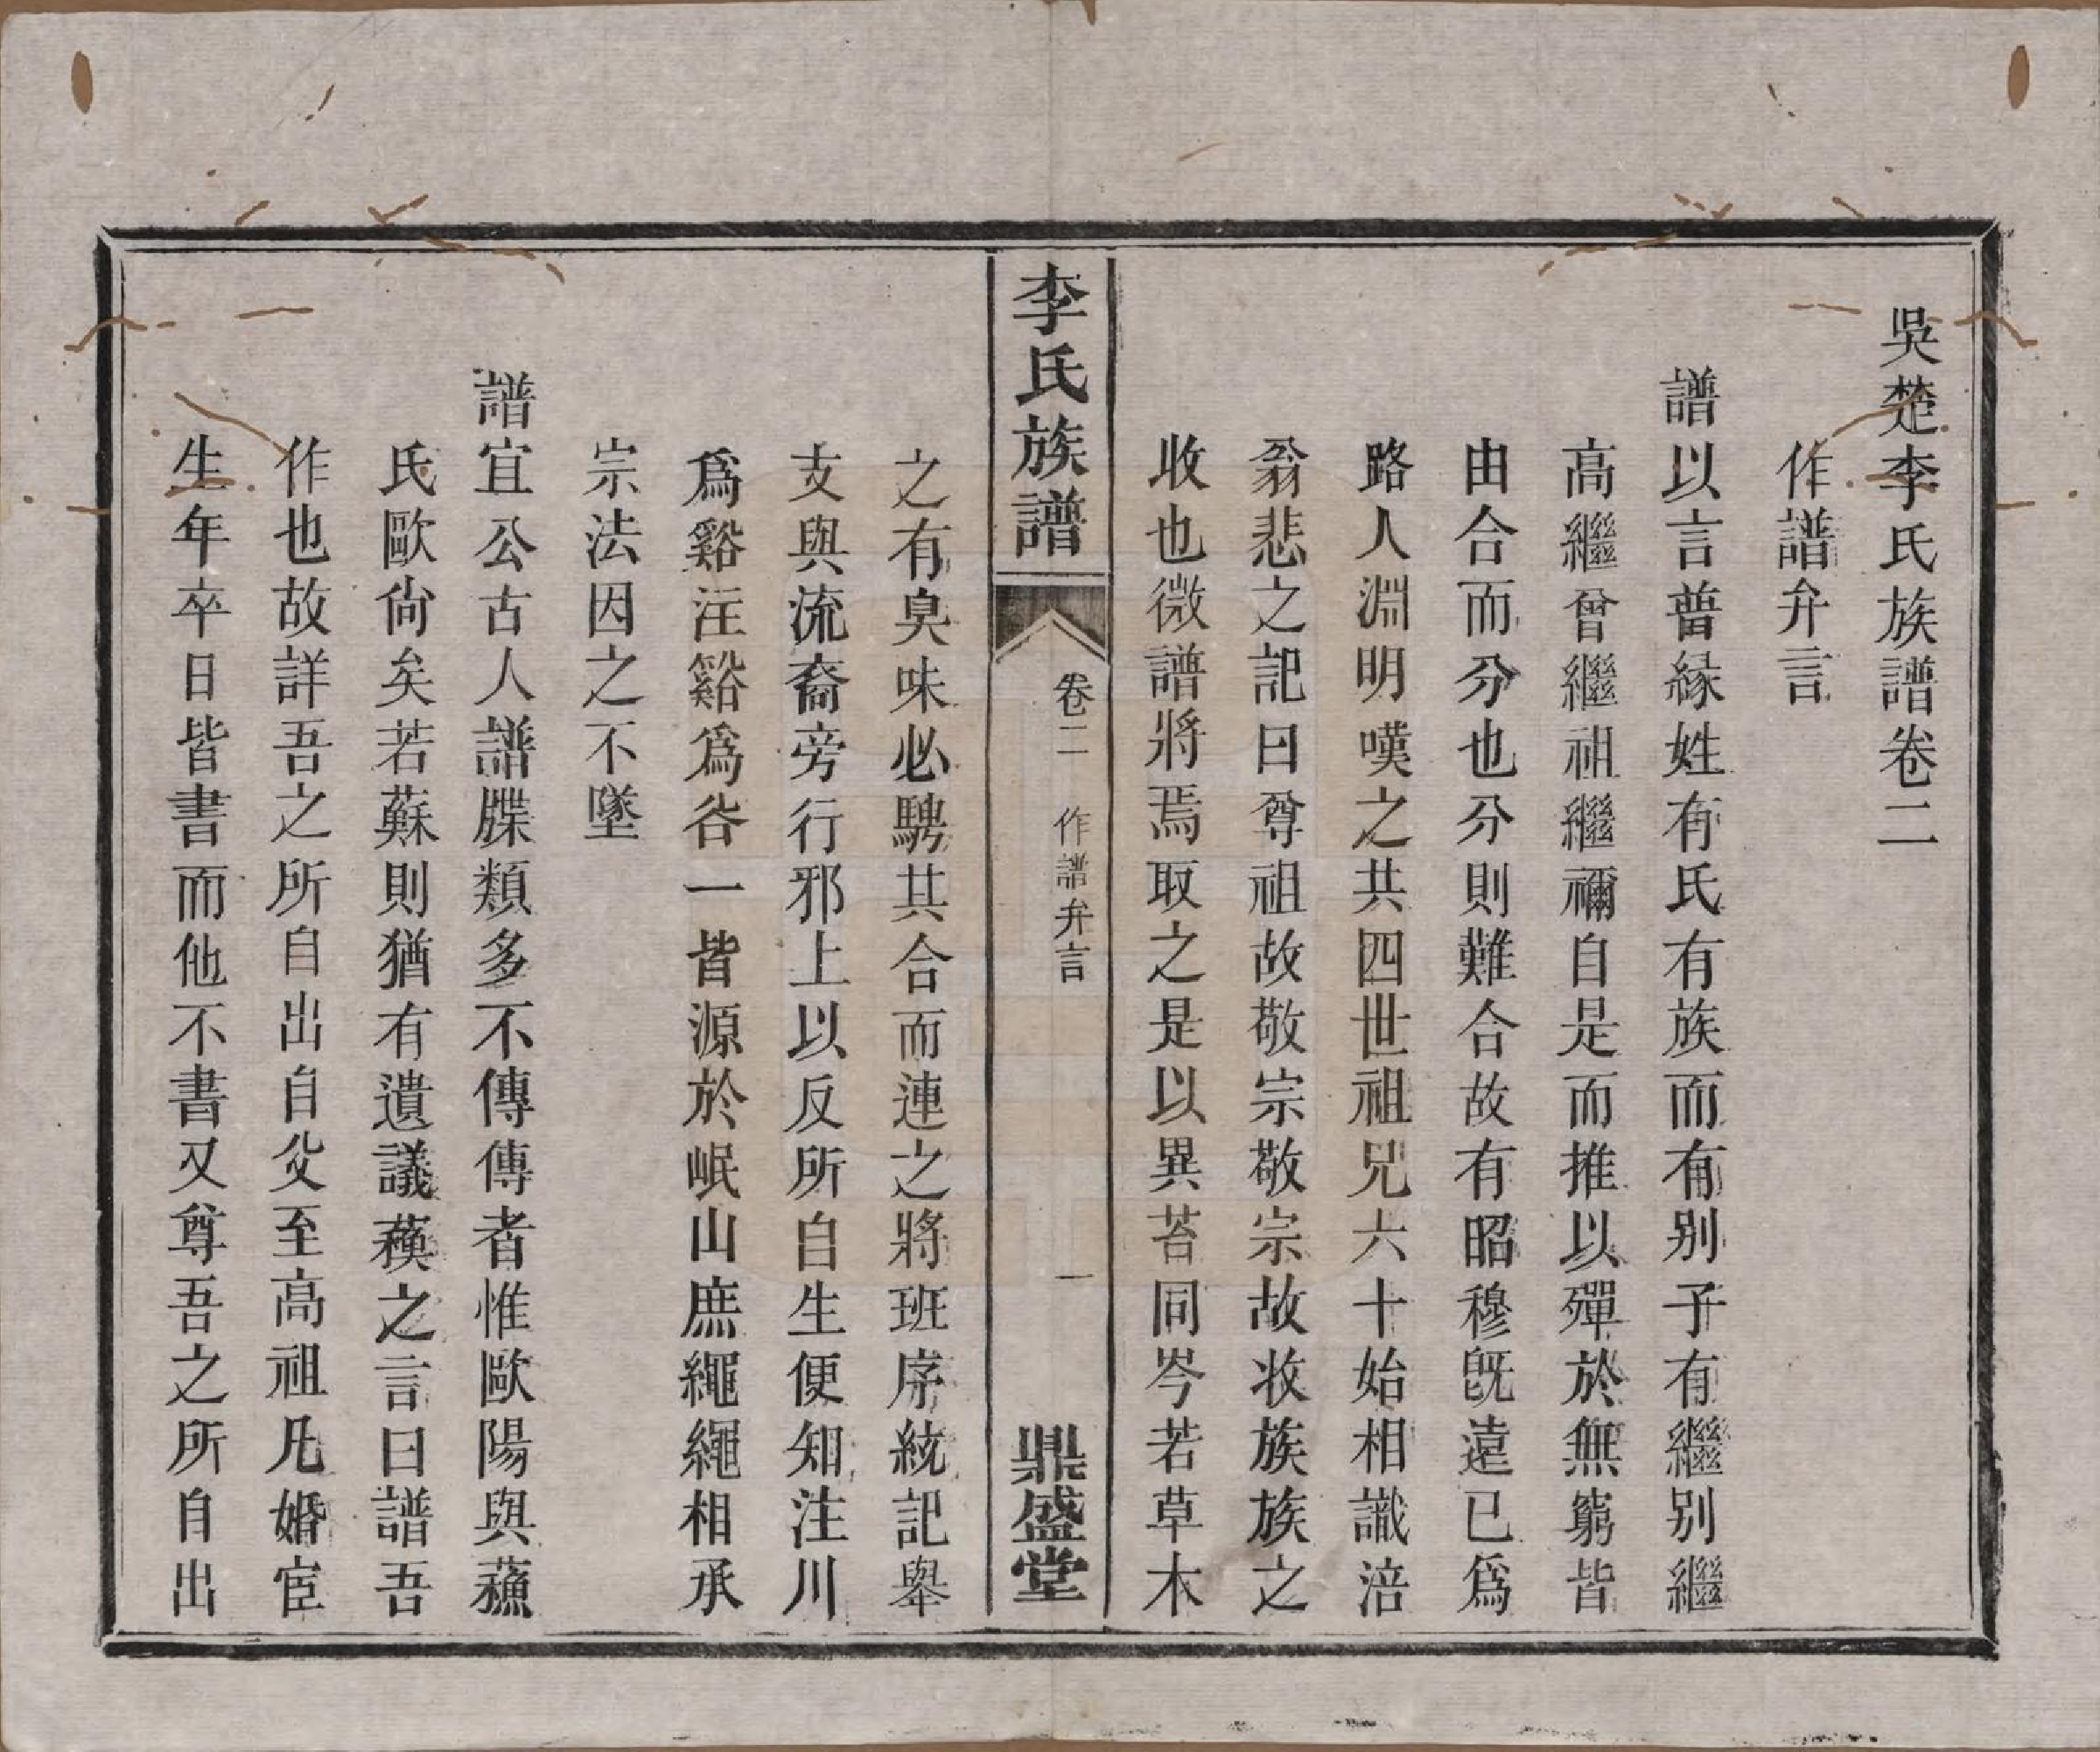 吳楚李氏族譜卷二
作譜弁言
譜以言普緣姓有氏有族而有別子有繼別繼
高繼曾繼祖繼禰自是而推以殫於無窮皆
由合而分也分則難合故有昭穆旣遠已爲
路人淵明嘆之共四世祖兄六十始相識涪
翁悲之記曰尊祖故敬宗敬宗故收族族之
收也微譜將焉取之是以異苔同岑若草木
李氏族譜
卷二
作譜弁言
一
鼎盛堂
之有臭味必騁其合而連之將班序統記舉
支與流裔旁行邪上以反所自生便知注川
爲谿注谿爲谷一皆源於岷山庶繩繩相承
宗法因之不墜
譜宜公古人譜牒類多不傳傳者惟歐陽與蘇
氏歐尙矣若蘇則猶有遺議蘇之言曰譜吾
作也故詳吾之所自出自父至高祖凡婚宦
生年卒日皆書而他不書又尊吾之所自出